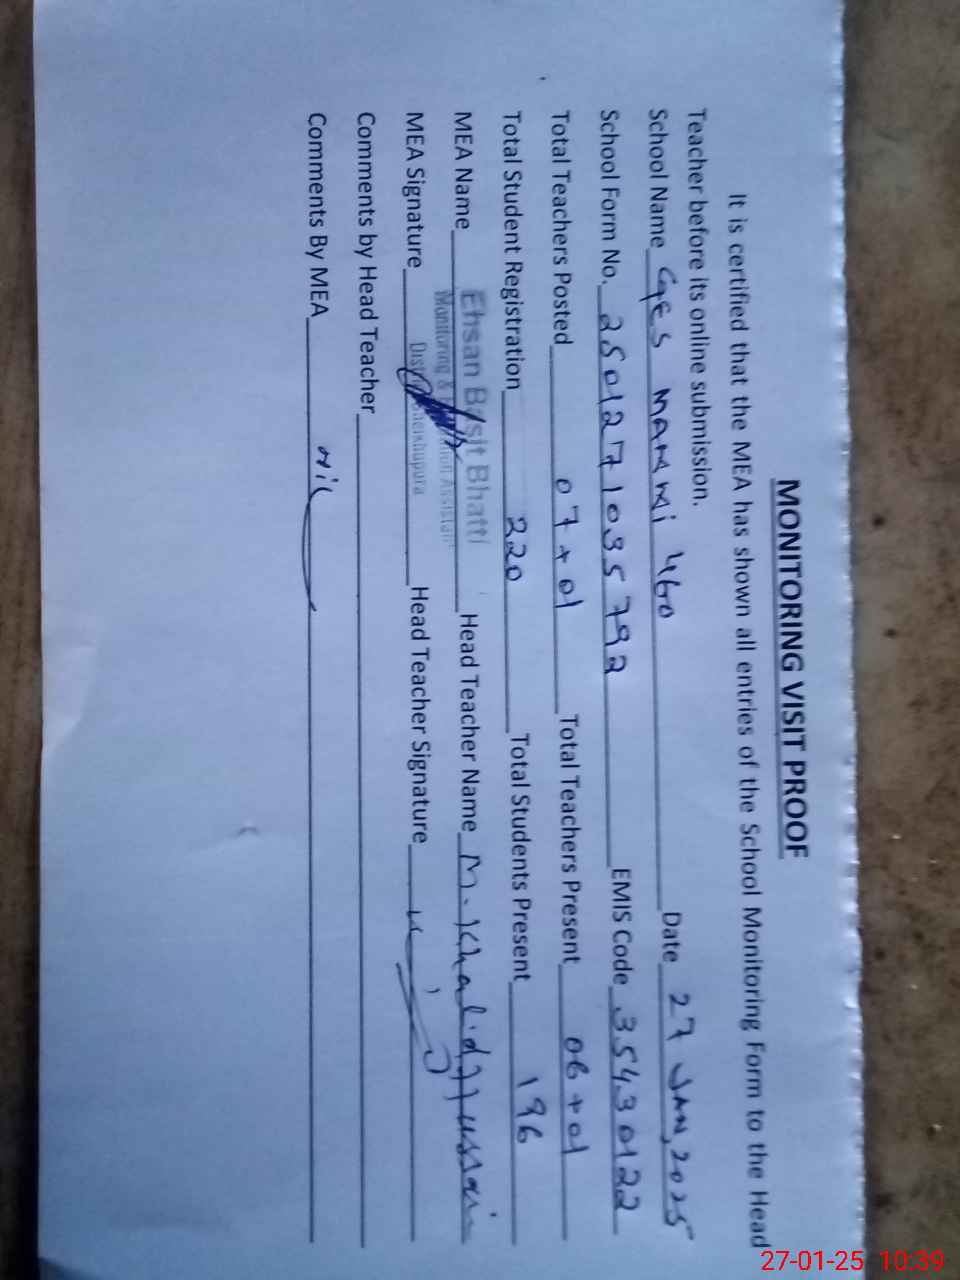 MONITORING VISIT PROOF
It is certified that the MEA has shown all entries of the School Monitoring Form to the Head
Teacher before its online submission.
School Name GES Mammi 460 Date 27 JAN, 2025
School Form No. 2501271035792 EMIS Code 35430122
Total Teachers Posted 07+01 Total Teachers Present 06+01
Total Student Registration 220 Total Students Present 196
MEA Name Ehsan Basit Bhatti Head Teacher Name M. Khalid Hussain
Monitoring & Assistant
MEA Signature Sheikhupura Head Teacher Signature
Comments by Head Teacher
Comments By MEA Nil
27-01-25 10:39